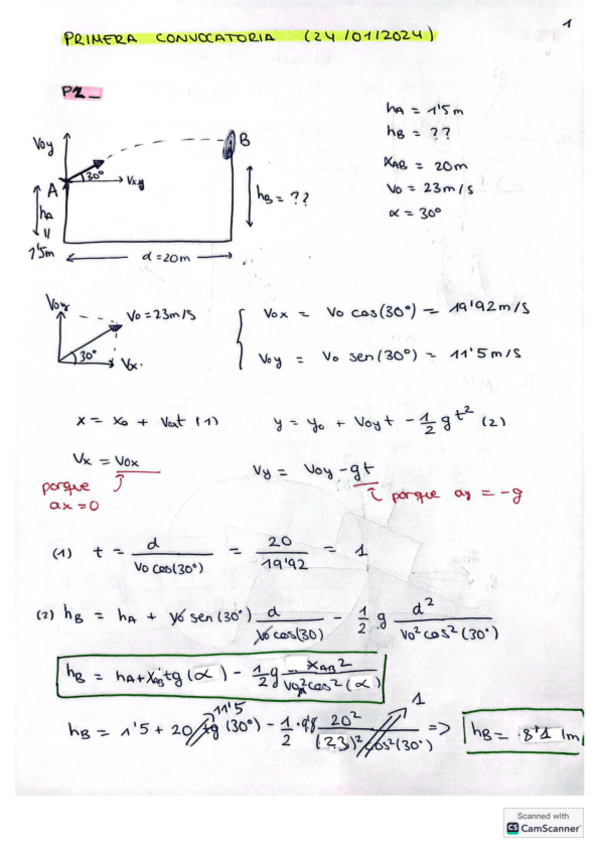 1
PRIMERA CONVOCATORIA (24/01/2024)
P2_
hA = 1'5m
hB = ??
XAB = 20m
Vo = 23m/s
α = 30°
Voy
B
30°
A
hA
1'5m
hB = ??
d = 20m
Voy
Vo = 23m/s
30°
Vx.
Vox = Vo cos(30°) = 19'92m/s
Voy = Vo sen(30°) = 11'5m/s
x = xo + Voxt (1)
y = yo + Voyt - 1/2 gt² (2)
Vx = Vox
porque
ax = 0
Vy = Voy - gt
porque ay = -g
(1) t = d / Vo cos(30°) = 20 / 19'92 = 1
(2) hB = hA + Vo sen(30°) d / Vo cos(30) - 1/2 g d² / Vo² cos²(30°)
hB = hA + XAB tg(α) - 1/2 g XAB2 / Vo² cos²(α)
11'5
1
hB = 1'5 + 20 tg(30°) - 1/2 · 9'8 20² / (23)² cos²(30°) => hB = 8'1 1m
Scanned with
CS CamScanner